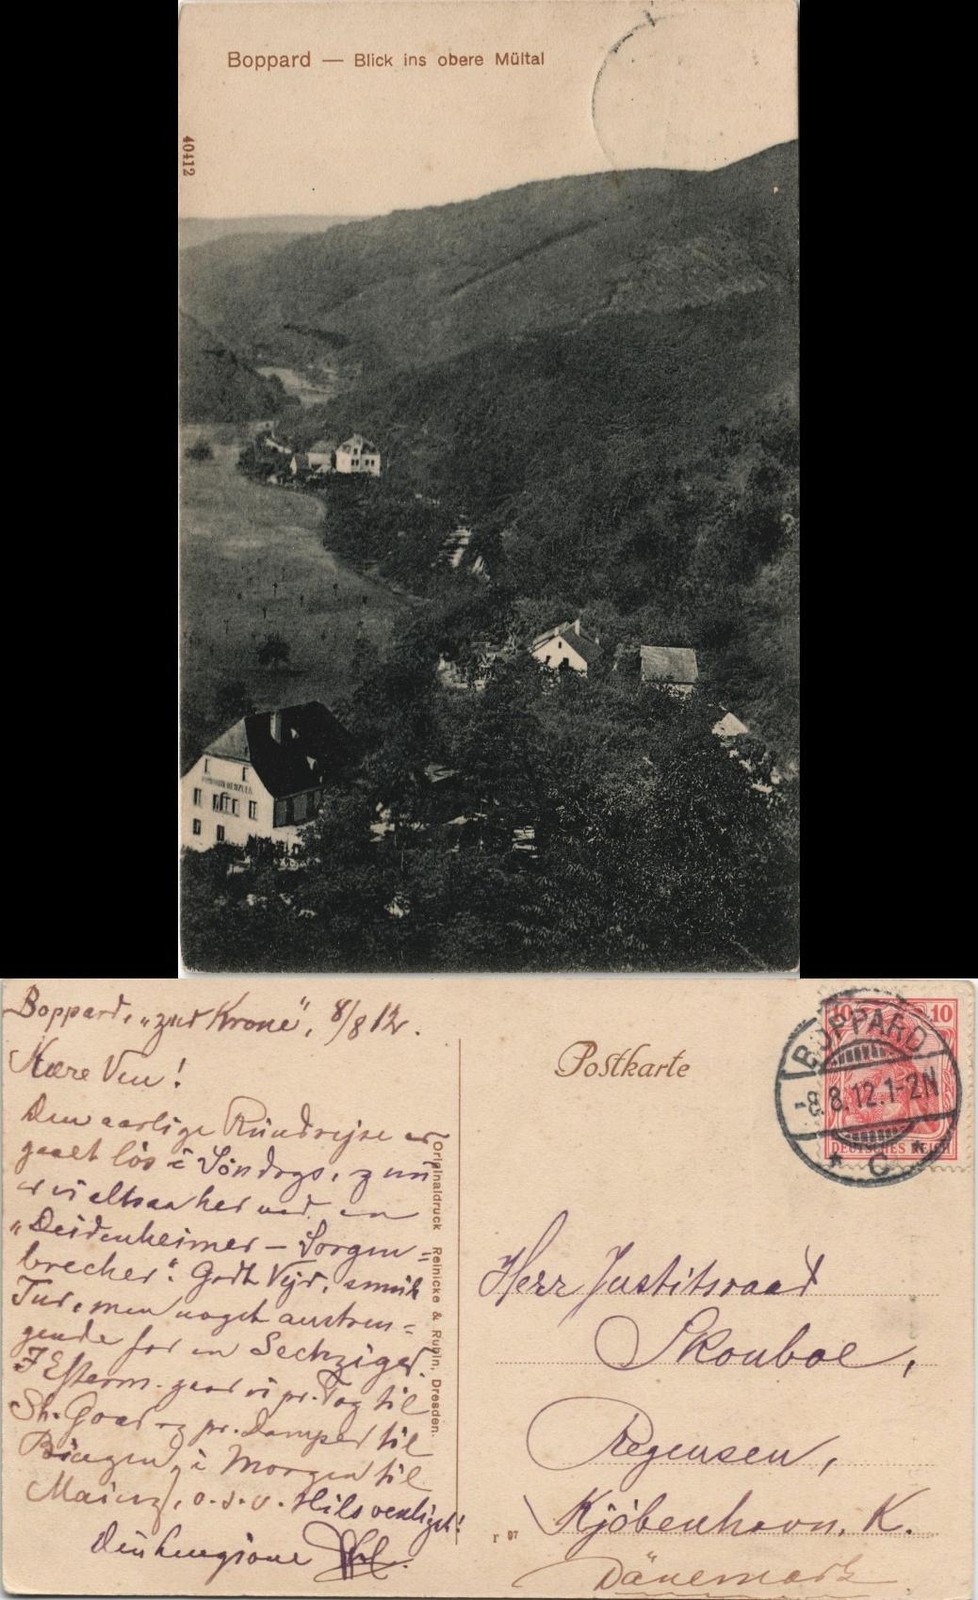 Boppard — Blick ins obere Mültal
40412
Boppard, „zur Krone", 8/8 12.
Kære Ven!
Den aarlige Rundrejse er
gaaet løs i Søndags, 
vi altsaa her ved en
„Deidenheimer - Sorgen=
brecher". Godt Vejr, smuk
Tur, men noget anstren=
gende for en Sechziger.
I Efterm. gaar vi pr. Tog til
St. Goar og pr. Damper til
Bingen, i Morgen til
Mainz, o.s.v. Hils venligst!
Din hengivne
Originaldruck Reinicke & Rubin, Dresden.
Postkarte
10 10
DEUTSCHES REICH
BOPPARD
-8.8.12.1-2N
* C *
Herr Justitsraad
Skouboe,
Regensen,
Kjöbenhavn. K.
Dänemark
r 07